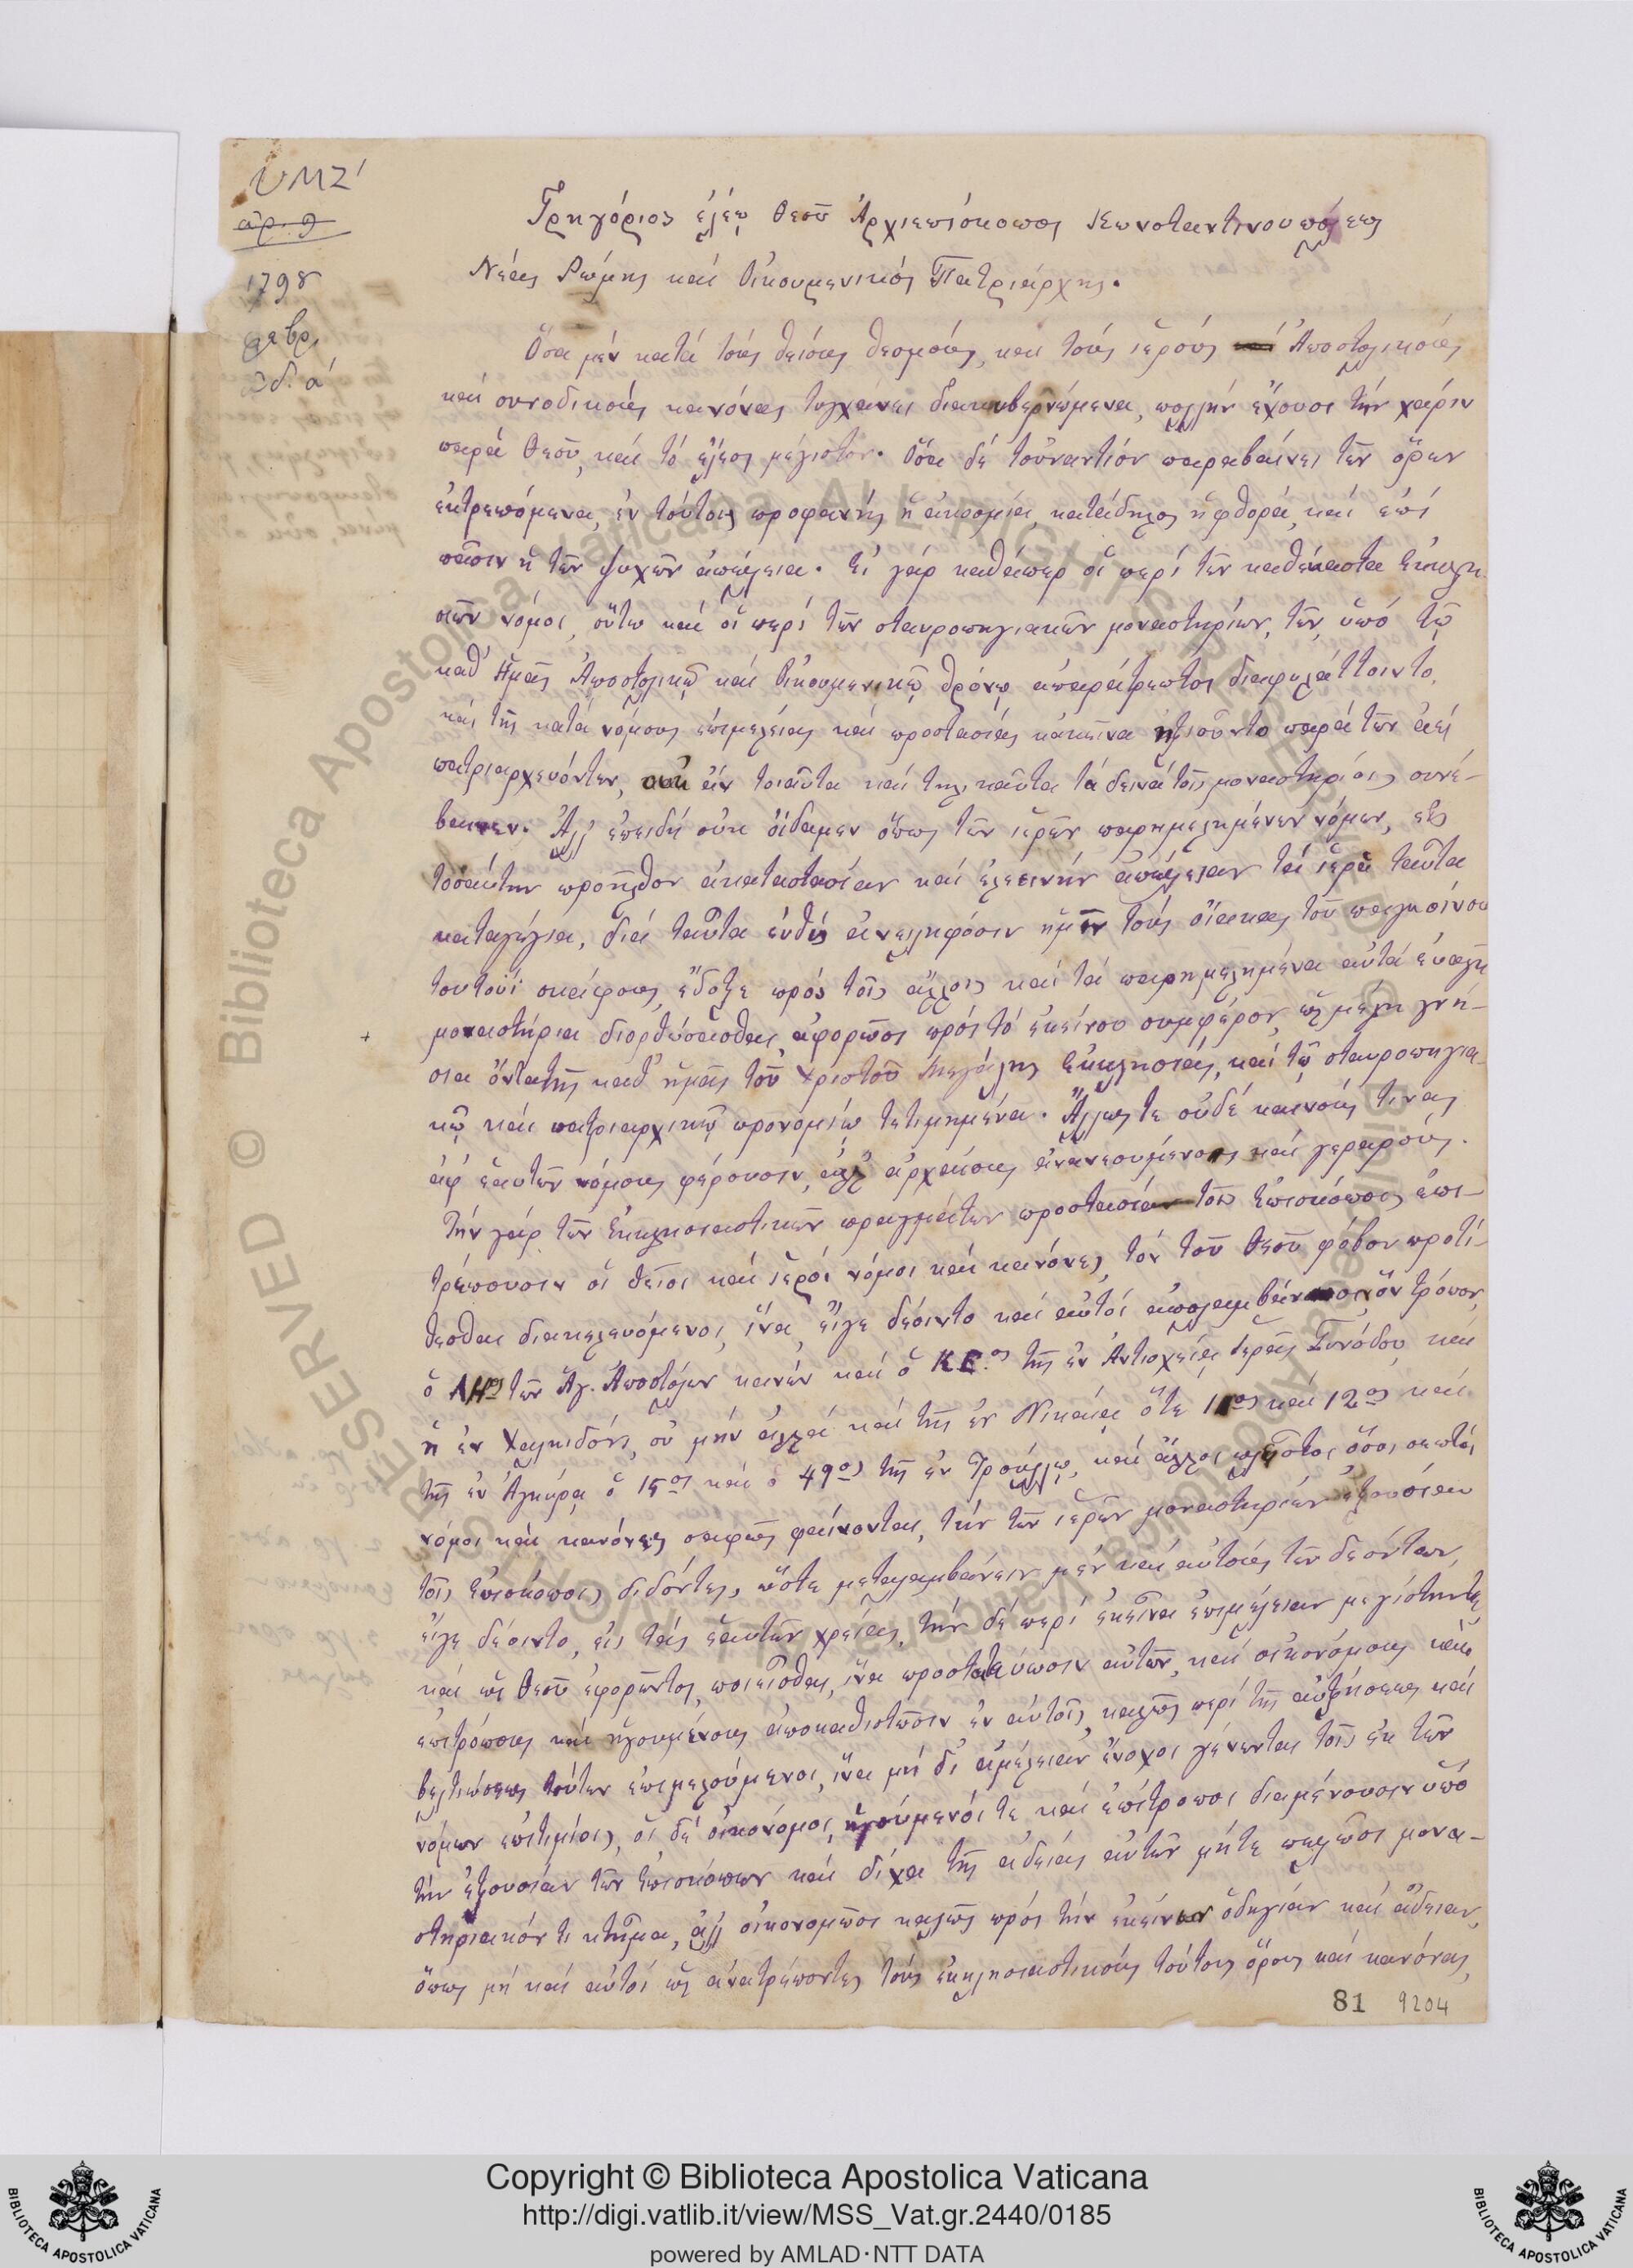 υμζ΄
αρ. 9
1798
φεβρ.
ἰνδ. α΄
Γρηγόριος ἐλέῳ Θεοῦ Ἀρχιεπίσκοπος Κωνσταντινουπόλεως
Νέας Ῥώμης καί Οἰκουμενικός Πατριάρχης.
Ὅσα μέν κατά τούς θείους θεσμούς, καί τούς ἱερούς Ἀποστολικούς
καί συνοδικούς κανόνας τυγχάνει διακυβερνώμενα, πολλήν ἔχουσι τήν χάριν
παρά Θεοῦ, καί τό ἔλεος μέγιστον. Ὅσα δέ τοὐναντίον παραβαίνει τῶν ὅρων
ἐκτρεπόμενα, ἐν τούτοις προφανής ἡ ἀκοσμία, κατάδηλος ἡ φθορά, καί ἐπί
πᾶσιν ἡ τῶν ψυχῶν ἀπώλεια. Εἰ γάρ καθάπερ οἱ περί τῶν καθέκαστα Ἐκκλη-
σιῶν νόμοι, οὕτω καί οἱ περί τῶν σταυροπηγιακῶν μοναστηρίων, τῶν ὑπό τῷ
καθ᾽ ἡμᾶς Ἀποστολικῷ καί Οἰκουμενικῷ θρόνῳ ἀπαράτρεπτοι διεφυλάττοιντο,
καί τῆς κατά νόμους ἐπιμελείας καί προστασίας κἀκεῖνα ἠξιοῦντο παρά τῶν ἀεί
πατριαρχευόντων, οὐκ ἄν τοιαῦτα καί τηλικαῦτα τά δεινά τοῖς μοναστηρίοις συνέ-
βαινεν. Ἀλλ᾽ ἐπειδή οὐκ οἴδαμεν ὅπως τῶν ἱερῶν παρημελημένων νόμων, εἰς
τοσαύτην προῆλθον ἀκαταστασίαν καί ἐλεεινήν ἀπώλειαν τά ἱερά ταῦτα
καταγώγια, διά ταῦτα εὐθύς ἀνειληφόσιν ἡμῖν τούς οἴακας τοῦ παγκοίνου
τουτουΐ σκάφους, ἔδοξε πρός τοῖς ἄλλοις καί τά παρημελημένα αὐτά εὐαγῆ
μοναστήρια διορθώσασθαι ἀφορῶσι πρός τό ἐκείνου συμφέρον, ὡς μέλη γνή-
σια ὄντα τῆς καθ᾽ ἡμᾶς τοῦ Χριστοῦ Μεγάλης Ἐκκλησίας, καί τῷ σταυροπηγια-
κῷ καί πατριαρχικῷ προνομίῳ τετιμημένα. Ἄλλως τε οὐδέ καινούς τινας
ἀφ᾽ ἑαυτῶν νόμους φέρουσιν, ἀλλ᾽ ἀρχαίους ἀνανεουμένοις καί γεραρούς.
Τήν γάρ τῶν Ἐκκλησιαστικῶν πραγμάτων προστασίαν τοῖς Ἐπισκόποις ἐπι-
τρέπουσιν οἱ θεῖοι καί ἱεροί νόμοι καί κανόνες, τόν τοῦ Θεοῦ φόβον προτί-
θεσθαι διακελευόμενοι, ἵνα, εἴγε δέοιντο καί αὐτοί ἀπολαμβάνωσιν, ὅν τρόπον,
ὁ ΛΗος τῶν Ἁγ. Ἀποστόλων κανών καί ὁ ΚΕ.ος τῆς ἐν Ἀντιοχείᾳ Ἱερᾶς Συνόδου, καί
ἡ ἐν Χαλκιδόνι, οὐ μήν ἀλλά καί τῆς ἐν Νικαίᾳ ὅτε 11ος καί 12ος καί
τῆς ἐν Ἀγκύρᾳ ὁ 15ος καί ὁ 49ος τῆς ἐν Τρούλλῳ, καί ἄλλοι πλεῖστοι ὅσοι σεπτοί
νόμοι καί κανόνες σαφῶς φαίνονται, τήν τῶν ἱερῶν μοναστηρίων ἐξουσίαν
τοῖς Ἐπισκόποις διδόντες, ὥστε μεταλαμβάνειν μέν καί αὐτούς τῶν δεόντων,
εἴγε δέοιντο, εἰς τάς ἑαυτῶν χρείας, τήν δέ περί ἐκεῖνα ἐπιμέλειαν μεγίστην τε
καί ὡς Θεοῦ ἐφορῶντος, ποιεῖσθαι, ἵνα προστατεύωσιν αὐτῶν, καί οἰκονόμους καί
ἐπιτρόπους καί ἡγουμένους ἀποκαθιστῶσιν ἐν αὐτοῖς, καλῶς περί τῆς αὐξήσεως καί
βελτιώσεως τούτων ἐπιμελούμενοι, ἵνα μή δι᾽ ἀμέλειαν ἔνοχοι γένωνται τοῖς ἐκ τῶν
νόμων ἐπιτιμίοις, οἱ δέ οἰκονόμοι, ἡγούμενοί τε καί ἐπίτροποι διαμένουσιν ὑπό
τήν ἐξουσίαν τῶν Ἐπισκόπων καί δίχα τῆς ἀδείας αὐτῶν μήτε πωλῶσι μονα-
στηριακόν τι κτῆμα, ἀλλ᾽ οἰκονομῶσι καλῶς πρός τήν ἐκείνων ὁδηγίαν καί ἄδειαν,
ὅπως μή καί αὐτοί ὡς ἀνατρέποντες τούς ἐκκλησιαστικούς τούτους ὅρους καί κανόνας,
81 9204
Copyright © Biblioteca Apostolica Vaticana
http://digi.vatlib.it/view/MSS_Vat.gr.2440/0185
powered by AMLAD·NTT DATA